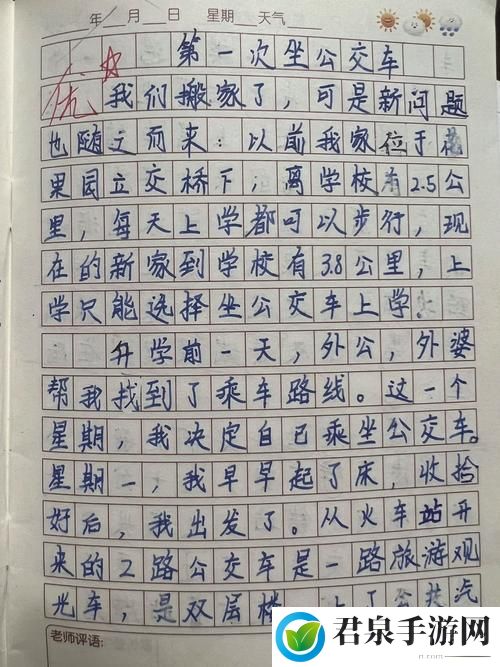 年 月 日 星期 天气
第一次坐公交车
优
我们搬家了，可是新问题
也随之而来：以前我家位于花
果园立交桥下，离学校有2.5公
里，每天上学都可以步行，现
在的新家到学校有3.8公里，上
学只能选择坐公交车上学。
升学前一天，外公，外婆
帮我找到了乘车路线。过一个
星期，我决定自已乘坐公交车。
星期一，我早早起了床，收拾
好后，我出发了。从火车站开
来的2路公交车是一路旅游观
光车，是双层楼
老师评语:
君泉手游网